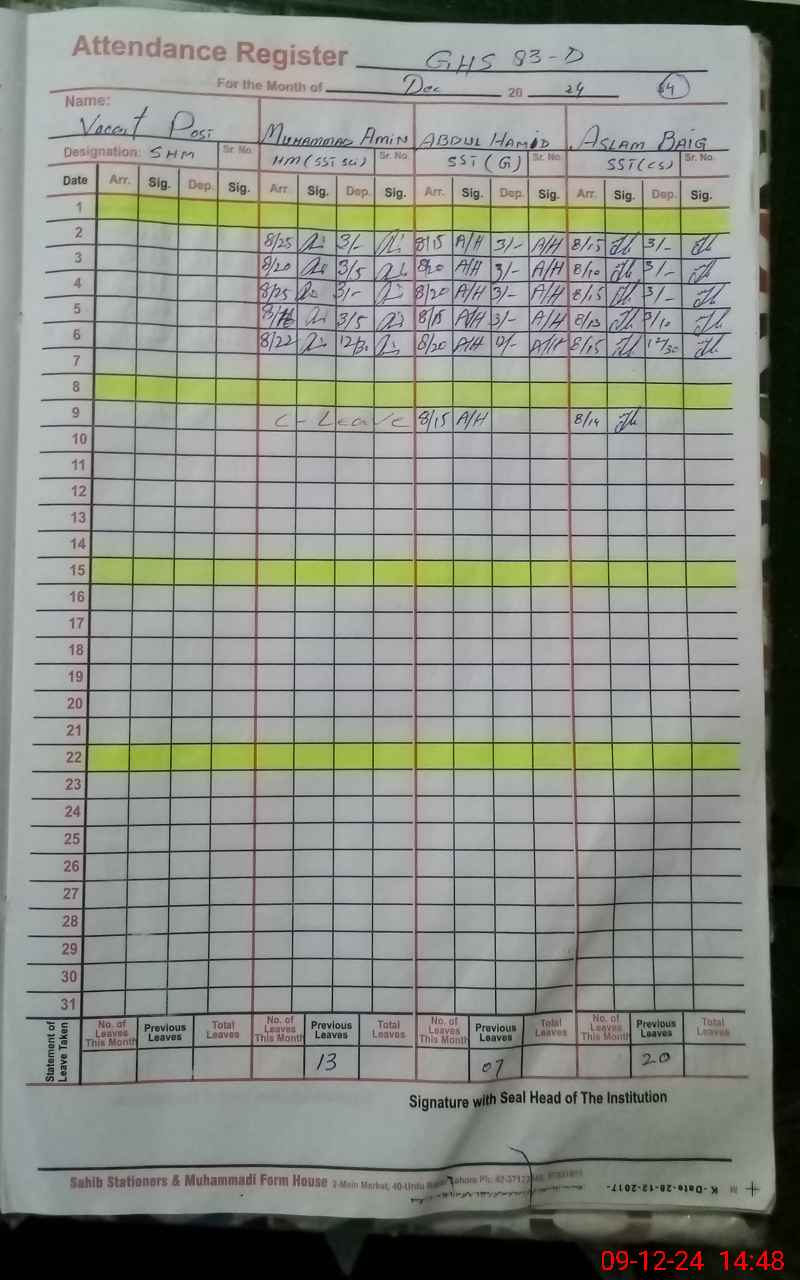 Attendance Register GHS 83-D
For the Month of Dec 20 24 (4)
Name: Vacant Post Muhammad Amin Abdul Hamid Aslam Baig
Designation: SHM Sr. No. HM (SST Sci) Sr. No. SST (G) Sr. No. SST (CS) Sr. No.
Date Arr. Sig. Dep. Sig. Arr. Sig. Dep. Sig. Arr. Sig. Dep. Sig. Arr. Sig. Dep. Sig.
1
2 8/25 3/- 8/15 A/H 3/- A/H 8/15 3/-
3 8/20 3/5 8/20 A/H 3/- A/H 8/10 3/-
4 8/25 3/- 8/20 A/H 3/- A/H 8/15 3/-
5 3/5 8/15 A/H 3/- A/H 8/13 3/10
6 8/22 12/30 8/20 A/H A/H 8/15 12/30
7
8
9 C-Leave 8/15 A/H 8/14
10
11
12
13
14
15
16
17
18
19
20
21
22
23
24
25
26
27
28
29
30
31
Statement of Leave Taken
No. of Leaves This Month Previous Leaves Total Leaves No. of Leaves This Month Previous Leaves Total Leaves No. of Leaves This Month Previous Leaves Total Leaves No. of Leaves This Month Previous Leaves Total Leaves
13 07 20
Signature with Seal Head of The Institution
Sahib Stationers & Muhammadi Form House 2-Main Market, 40-Urdu Lahore Ph: 42-3712
K-Date-28-12-2017-
09-12-24 14:48